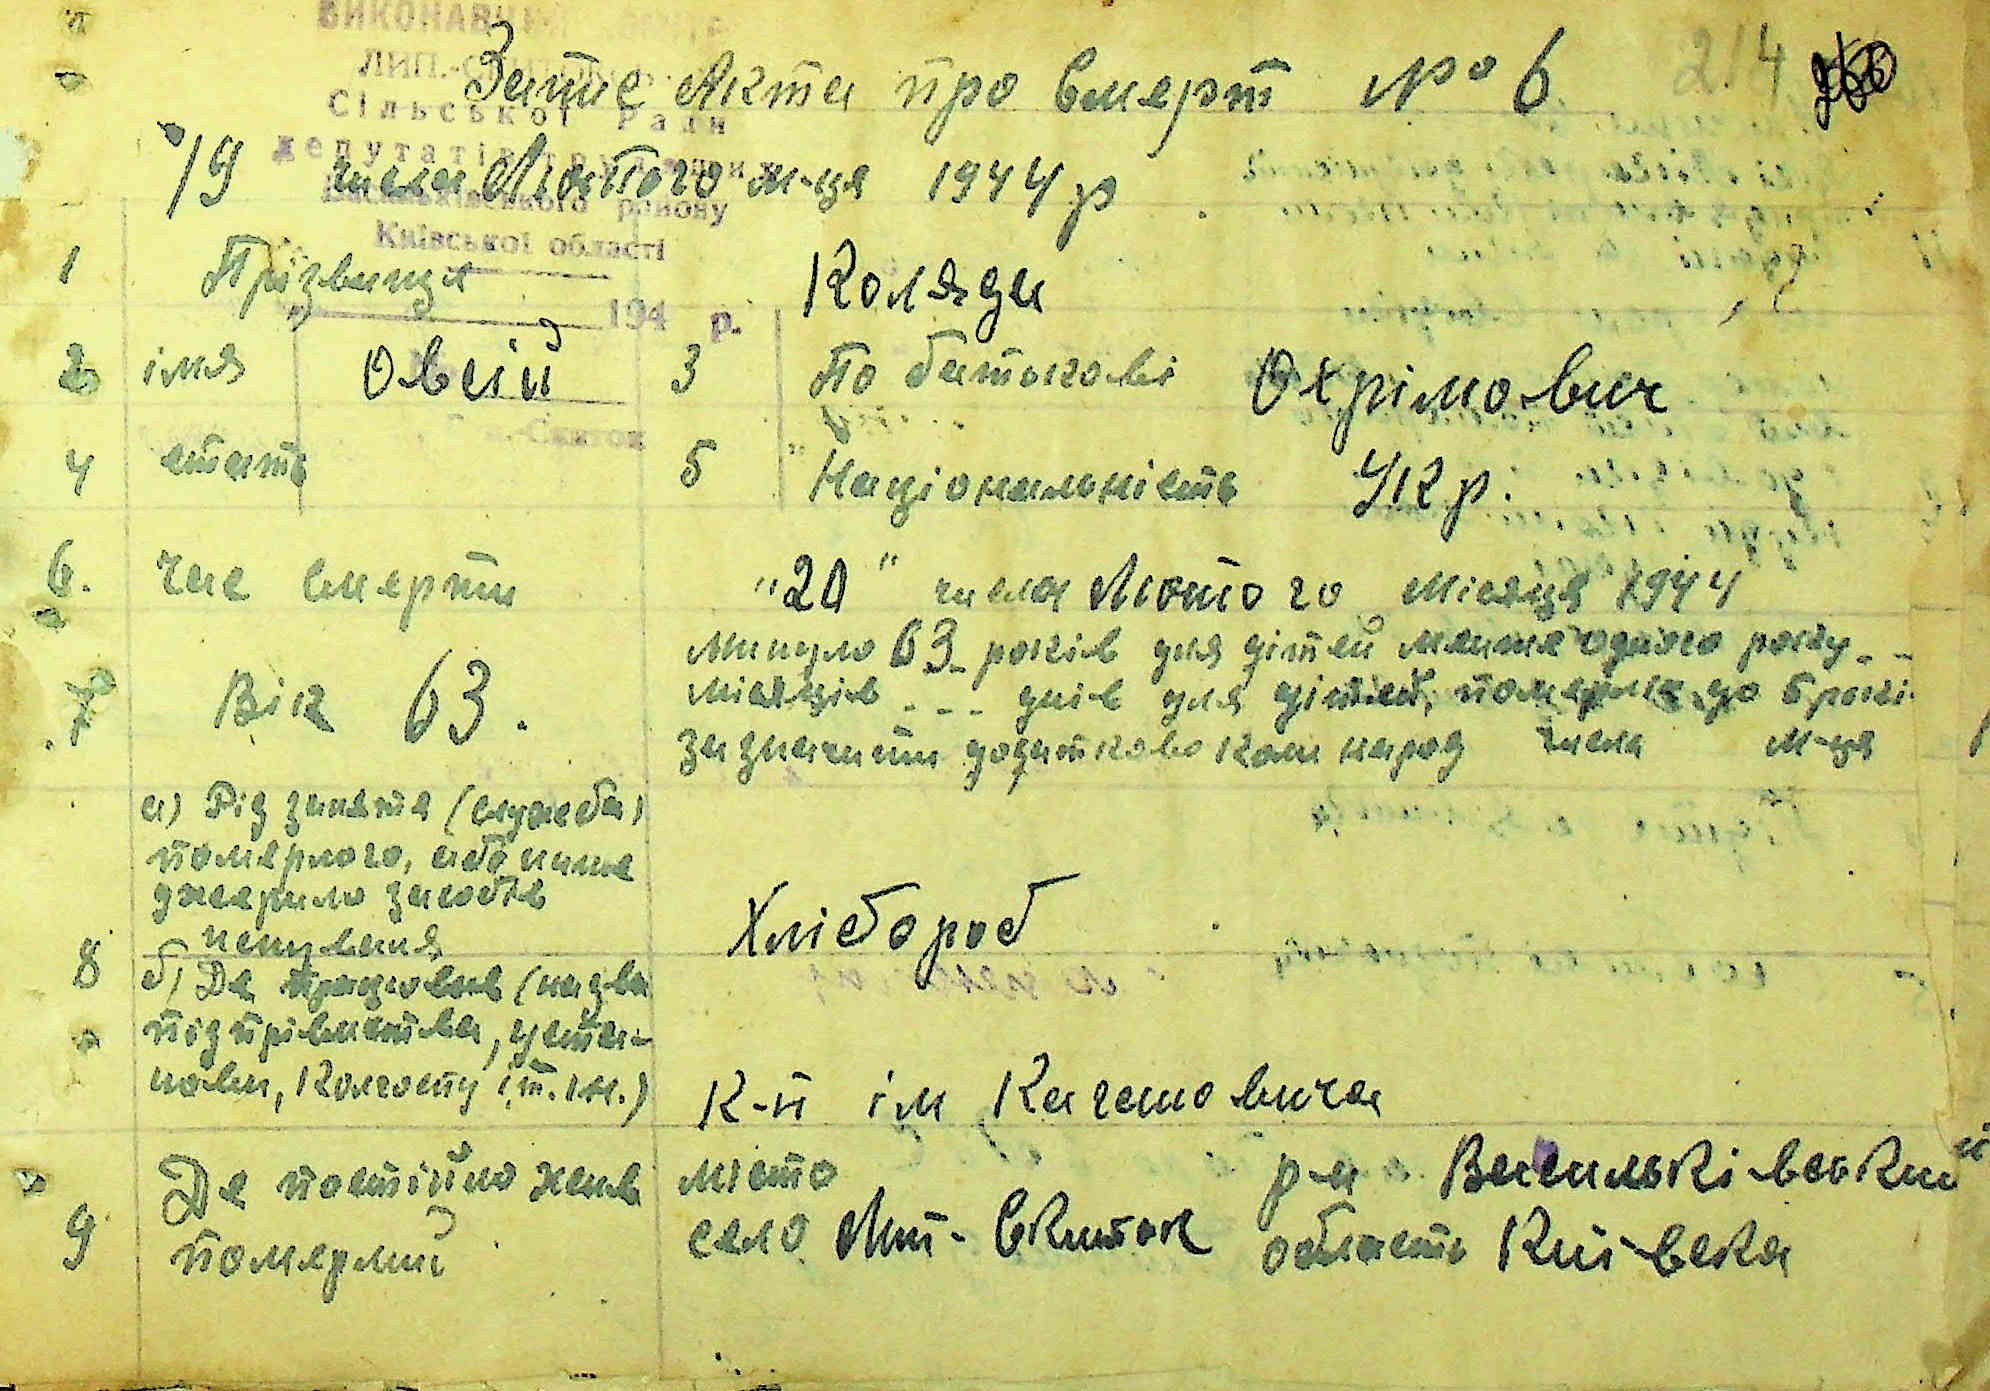 ВИКОНАВЧИЙ
ЛИП.-
Сільської Ради
депутатів трудящих
Васильківського району
Київської області
194 р.
Скиток
Запис Акта про смерт № 6
214
19 числа Лютого м-ця 1944 р
1 Прізвище Коляда
2 імя Овсій 3 По батькові Охрімович
4 стать 5 Національність Укр.
6. Час смерти "20" числа Лютого Місяця 1944
7 Вік 63. Минуло 63 років для дітей менше одного року - -
місяців - - - днів для дітей, померли до 5 років
зазначити додатково коли народ числа м-ця
8 а) Рід заняття (служба)
померлого, або інше
джерело засобів
існування
Хлібороб
б) Де працював (назва
підприємства, уста-
нови, Колгоспу і т. ін.)
К-п ім Кагановича
9 Де постійно жив
померлий
місто р-н Васильківський
село Лип-Скиток область Київська